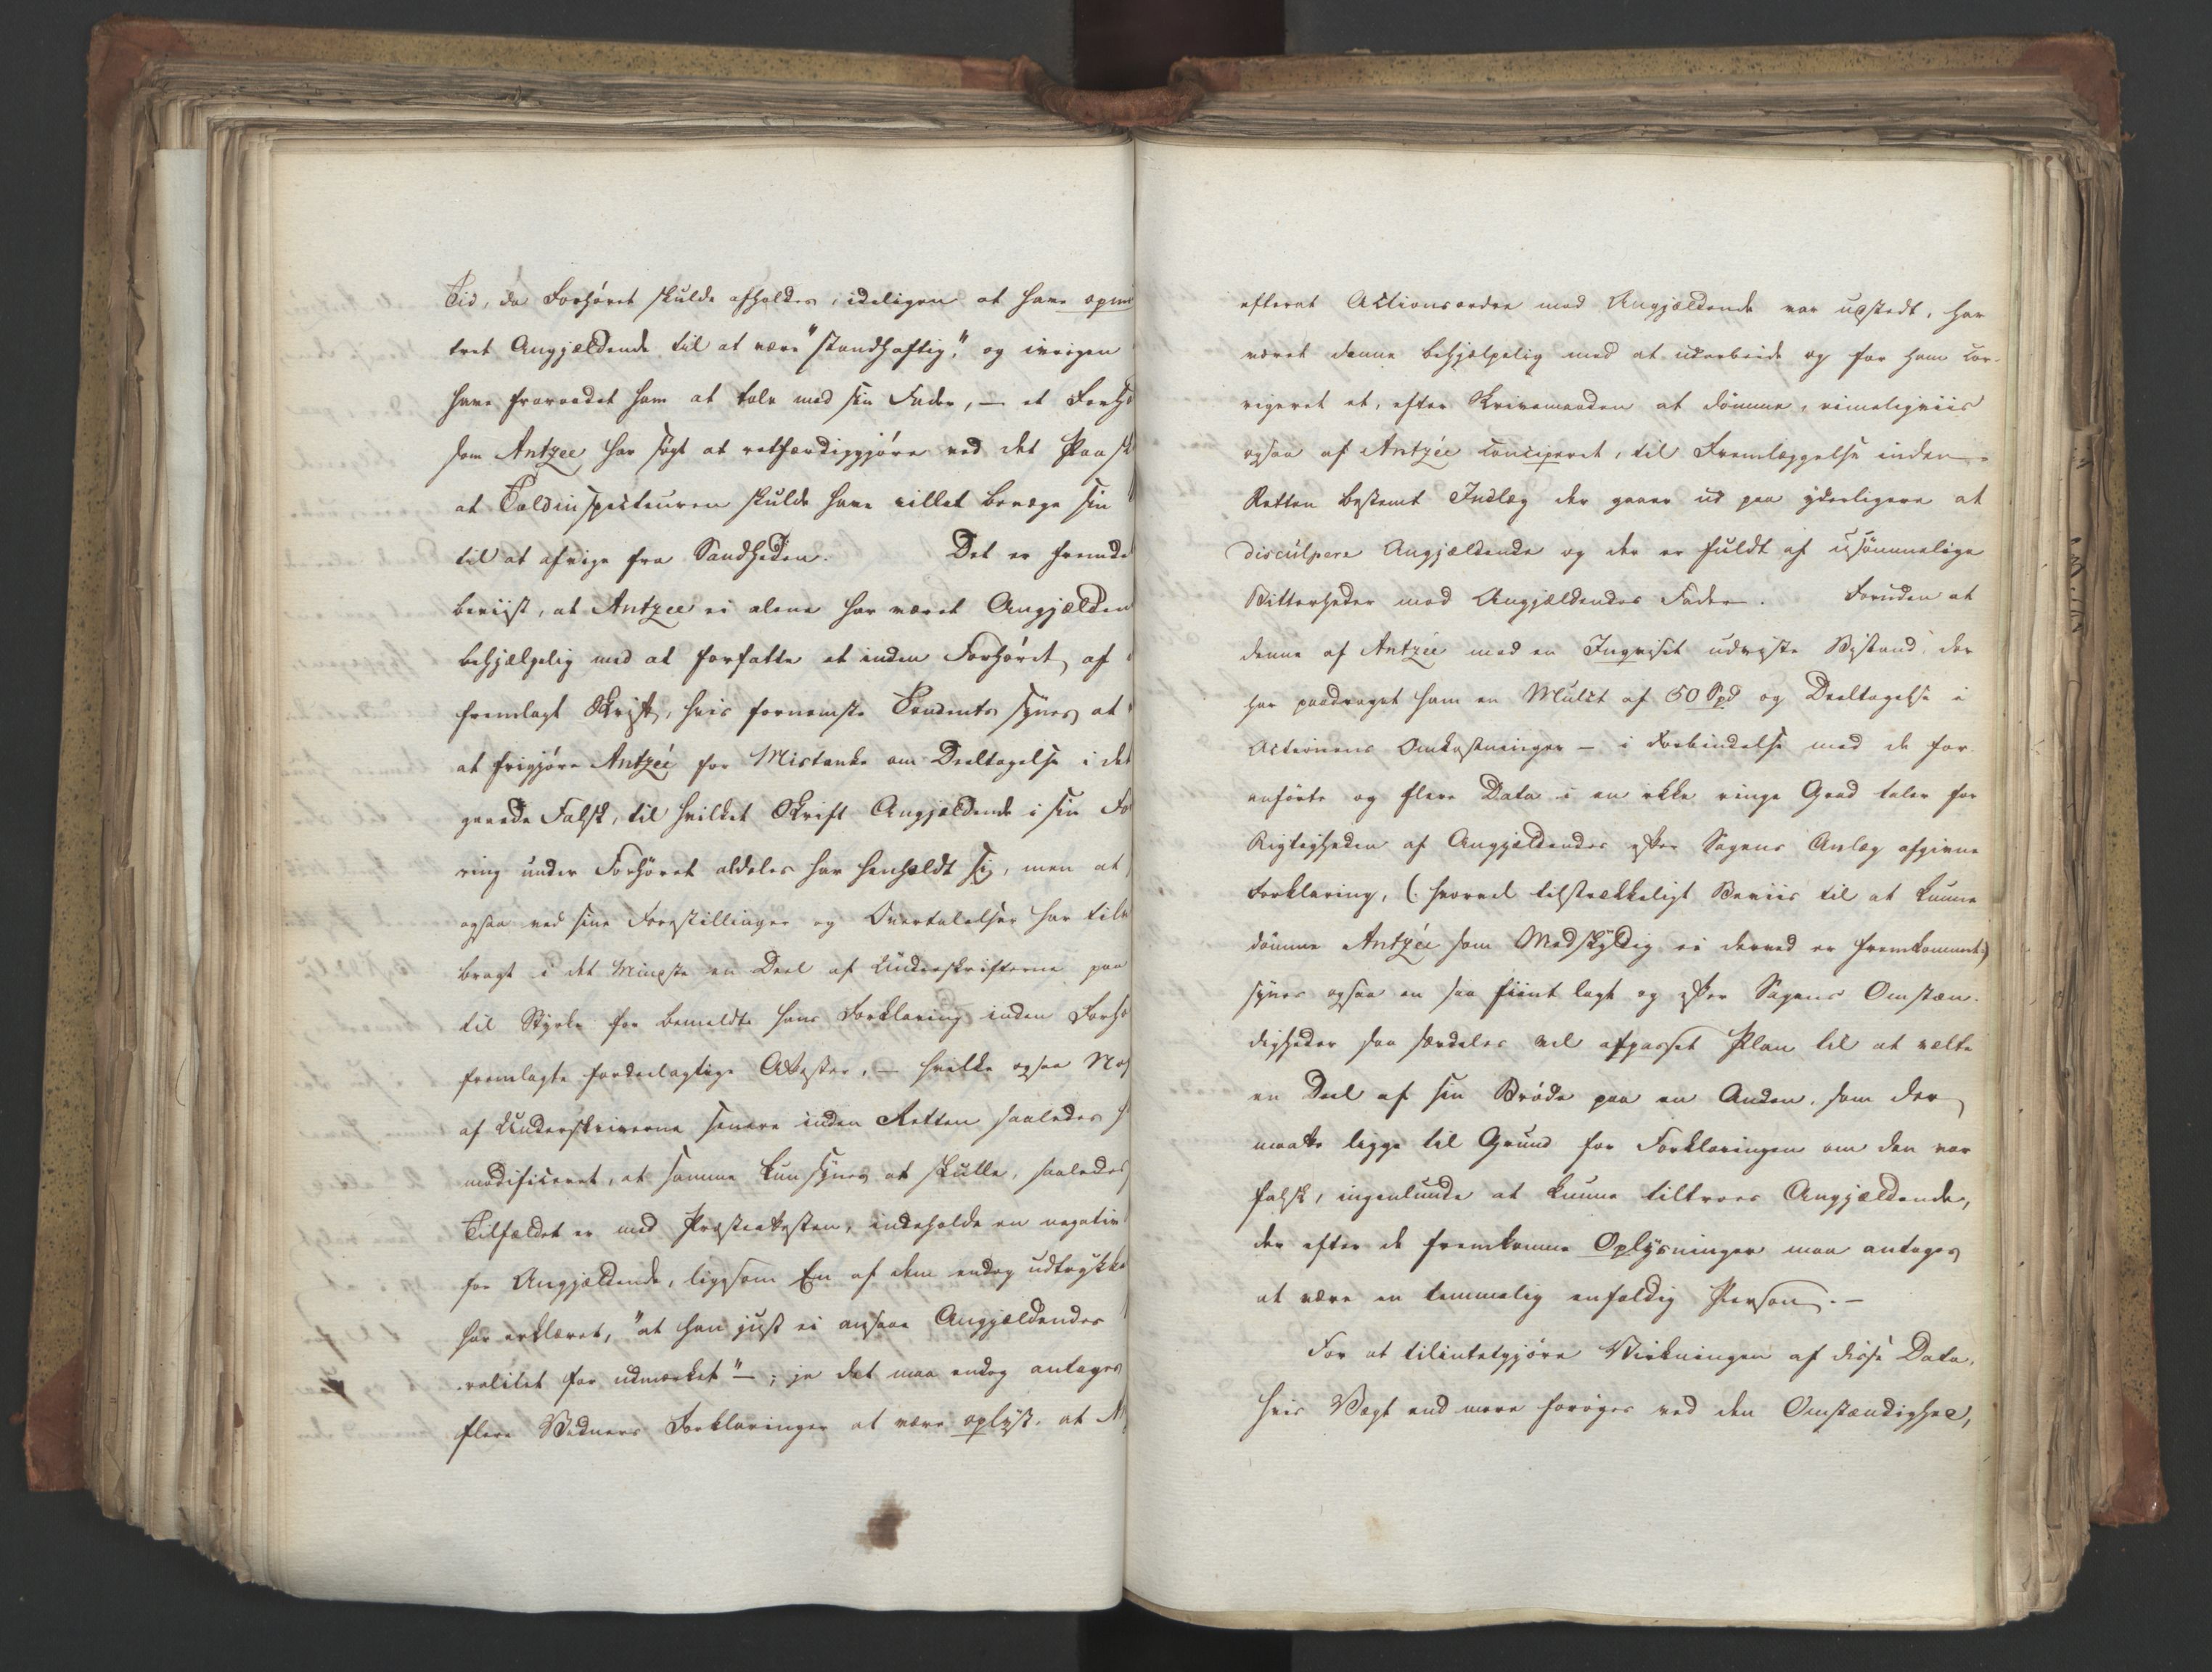 Tid, da Forhöret skulde afholdes, ideligen at have opmun
tret Angjældende til at være "standhaftig", og ivrigen
have fraraadet ham at tale med sin Fader, — et Forho
som Antzée har sögt at retfærdiggjöre ved det Paask
at Toldinspecteuren skulde have villet bevæge sin
til at afvige fra Sandheden. Det er fremde
beviist, at Antzee ei alene har været Angjælden
behjælpelig med at forfatte et inden Forhöret af
fremlagt Skrift, hvis fornemste Tendents synes at
at frigjöre Antzée for Mistanke om Deeltagelse i det
gaaede Falsk, til hvilket Skrift Angjældende i sin Fo
ring under Forhöret aldeles har henholdt sig, men at
ogsaa ved sine Forestillinger og Overtalelser har tilve
bragt i det Mindste en Deel af Underskrifterne paa
til Styrke for bemeldte hans Forklaring inden Forhö
fremlagte fordeelagtige Attester, — hvilke ogsaa No
af Underskriverne senere inden Retten saaledes h
modificeret, at samme kun synes at skulle, saaledes
Tilfældet er med Præsteattesten, indeholde en negativ
for Angjældende, ligesom Een af dem endog udtrykke
har erklæret, "at han just ei ansaae Angjældendes
ralitet for udmærket" —; ja det maa endog antages
flere Vidners Forklaringer at være oplyst, at A
efterat Actionsordre mod Angjældende var udstedt, har
været denne behjælpelig med at udarbeide og for ham cor-
rigeret et, efter Skrivemaaden at dömme, rimeligviis
ogsaa af Antzée conciperet, til Fremlæggelse inden
Retten bestemt Indlæg der gaaer ud paa yderligere at
disculpere Angjældende og der er fuldt af usömmelige
Bitterheder mod Angjældendes Fader. Foruden at
denne af Antzée mod en Inqvisit udviste Bistand der
har paadraget ham en Mulct af 50 Spd og Deeltagelse i
Actionens Omkostninger — i Forbindelse med de for
anförte og flere Data i en ikke ringe Grad taler for
Rigtigheden af Angjældendes efter Sagens Anlæg afgivne
Forklaring, (: hvorvel tilstrækkeligt Beviis til at kunne
dömme Antzée som Medskyldig ei derved er fremkommet:)
synes ogsaa en saa fiint lagt og efter Sagens Omstæn-
digheder saa særdeles vel afpasset Plan til at vælte
en Deel af sin Bröde paa en Anden, som der
maatte ligge til Grund for Forklaringen om den var
falsk, ingenlunde at kunne tiltroes Angjældende,
der efter de fremkomne Oplysninger maa antages
at være en temmelig enfoldig Person. —
For at tilintetgjöre Virkningen af disse Data,
hvis Vægt end mere foröges ved den Omstændighed,